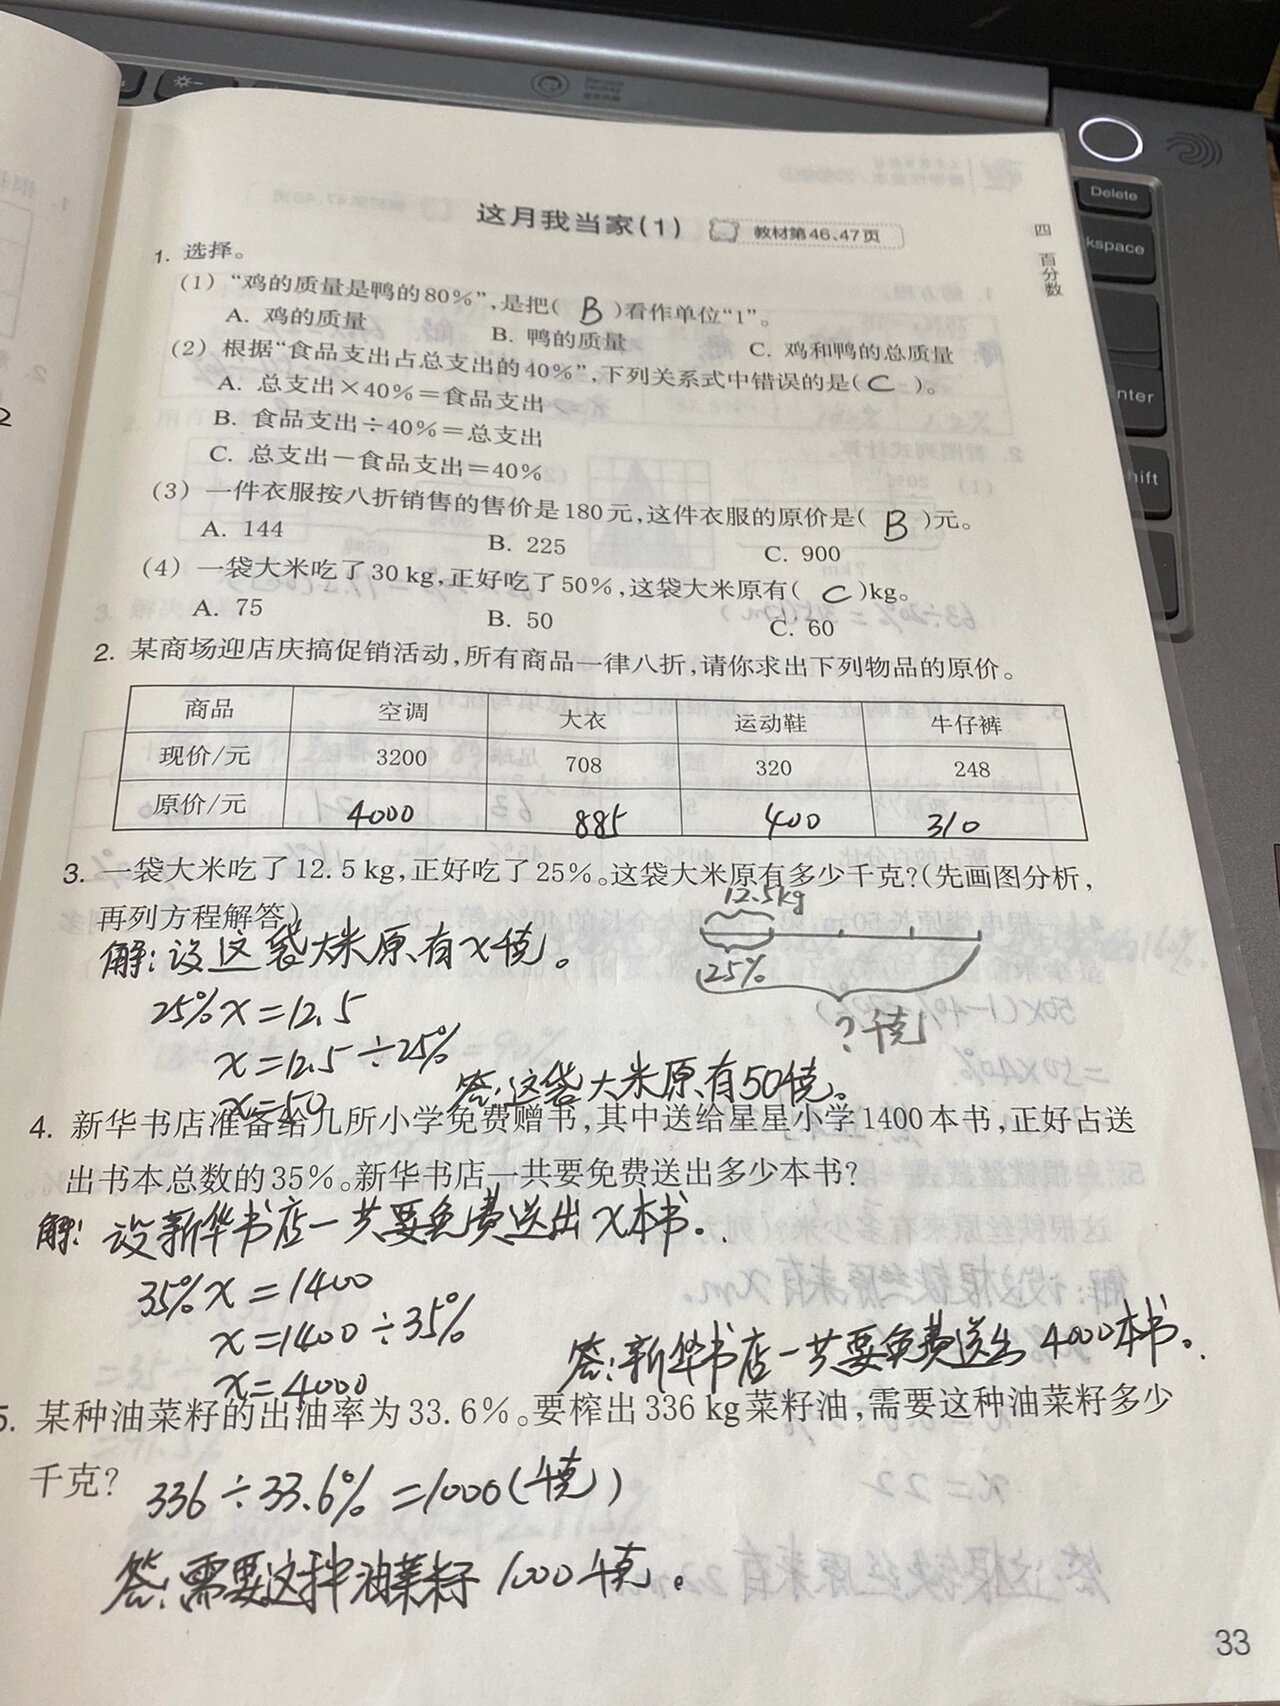 Delete
kspace
nter
hift
四 百分数
这月我当家(1) 教材第46、47页
1. 选择。
(1) “鸡的质量是鸭的80%”,是把( B )看作单位“1”。
A. 鸡的质量 B. 鸭的质量 C. 鸡和鸭的总质量
(2) 根据“食品支出占总支出的40%”,下列关系式中错误的是( C )。
A. 总支出×40%=食品支出
B. 食品支出÷40%=总支出
C. 总支出-食品支出=40%
(3) 一件衣服按八折销售的售价是180元,这件衣服的原价是( B )元。
A. 144 B. 225 C. 900
(4) 一袋大米吃了30 kg,正好吃了50%,这袋大米原有( C )kg。
A. 75 B. 50 C. 60
2. 某商场迎店庆搞促销活动,所有商品一律八折,请你求出下列物品的原价。
商品 空调 大衣 运动鞋 牛仔裤
现价/元 3200 708 320 248
原价/元 4000 885 400 310
3. 一袋大米吃了12.5 kg,正好吃了25%。这袋大米原有多少千克?(先画图分析,
再列方程解答)
12.5kg
25%
?千克
解:设这袋大米原有x千克。
25%x=12.5
x=12.5÷25%
x=50
答:这袋大米原有50千克。
4. 新华书店准备给几所小学免费赠书,其中送给星星小学1400本书,正好占送
出书本总数的35%。新华书店一共要免费送出多少本书?
解:设新华书店一共要免费送出x本书。
35%x=1400
x=1400÷35%
x=4000
答:新华书店一共要免费送出4000本书。
5. 某种油菜籽的出油率为33.6%。要榨出336 kg菜籽油,需要这种油菜籽多少
千克?
336÷33.6%=1000(千克)
答:需要这种油菜籽1000千克。
33